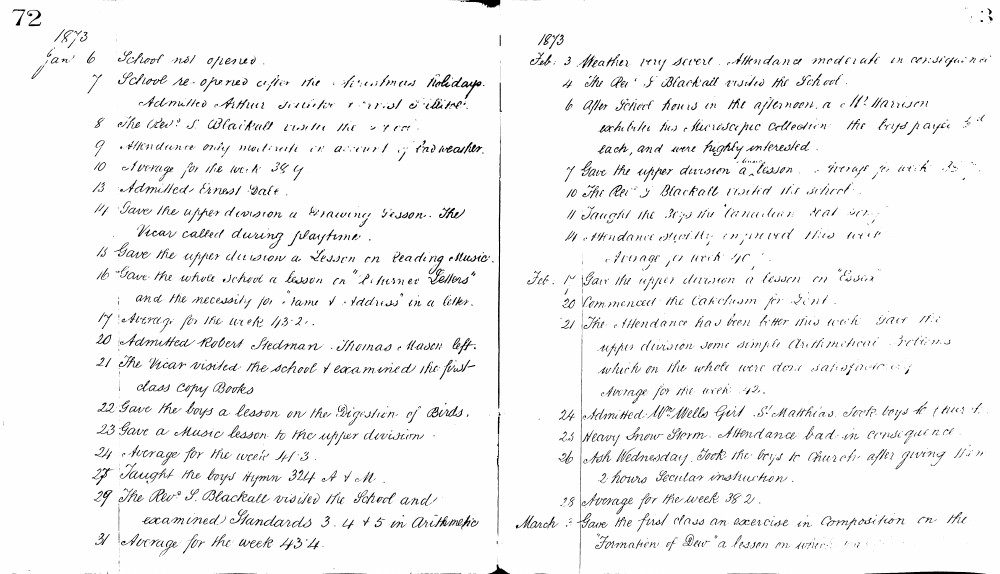 72
1873
Jan 6 School not opened.
7 School re-opened after the Christmas Holidays.
Admitted Arthur
8 The Revd S. Blackall visited the school.
9 Attendance only moderate on account of bad weather.
10 Average for the week 38.4
13 Admitted Ernest Dale.
14 Gave the upper division a Drawing Lesson. The
Vicar called during playtime.
15 Gave the upper division a Lesson on Reading Music.
16 Gave the whole School a lesson on "Returned Letters"
and the necessity for "Name & Address" in a letter.
17 Average for the week 43.2.
20 Admitted Robert Stedman. Thomas Mason left.
21 The Vicar visited the school & examined the first
class Copy Books
22 Gave the boys a lesson on the Digestion of Birds.
23 Gave a Music lesson to the upper division.
24 Average for the week 41.3.
27 Taught the boys Hymn 324 A & M.
29 The Revd S. Blackall visited the School and
examined Standards 3. 4 & 5 in Arithmetic
31 Average for the week 43.4.
1873
Feb. 3 Weather very severe. Attendance moderate in consequence
4 The Revd S Blackall visited the School.
6 After School hours in the afternoon, a Mr Harrison
exhibited his Microscopic Collection the boys payed
each, and were highly interested.
7 Gave the upper division a lesson. Average for week
10 The Revd S Blackall visited the school.
11 Taught the Boys the "Canadian Boat Song"
14 Attendance slightly improved this week
Average for week 40
Feb. 17 Gave the upper division a lesson on "Essex"
20 Commenced the Catechism for Lent.
21 The Attendance has been better this week Gave the
upper division some simple Arithmetical Problems
which on the whole were done satisfactorily
Average for the week 42.
24 Admitted Wm Wells Girt. St Matthias. Took boys to Church.
25 Heavy Snow Storm. Attendance bad in consequence.
26 Ash Wednesday. Took the boys to Church after giving them
2 hours Secular instruction.
28 Average for the week 38.2.
March 3 Gave the first class an exercise in Composition on the
"Formation of Dew" a lesson on which